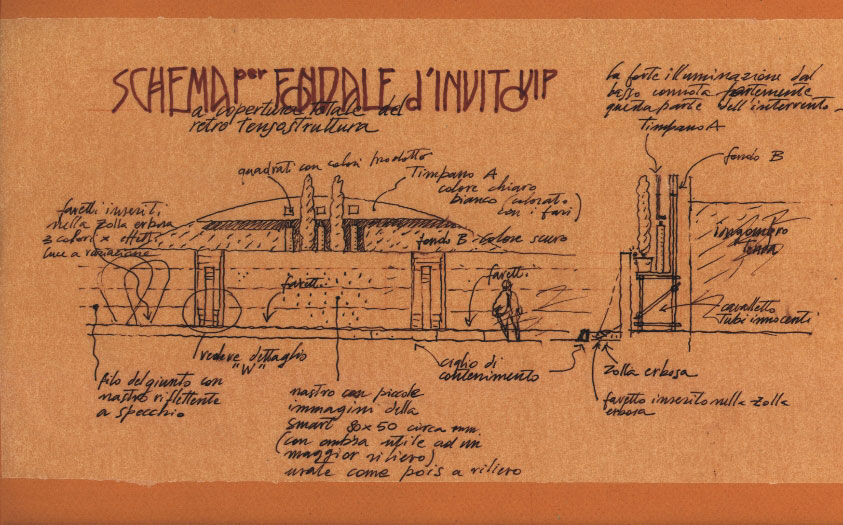 SCHEMA per FONDALE d'INVITO VIP
a copertura totale del
retro Tensostruttura
la forte illuminazione dal
basso connota fortemente
questa parte dell'intervento
Timpano A
fondo B
quadrati con colori prodotto
Timpano A
colore chiaro
bianco (colorato
con i fari)
faretti inseriti
nella zolla erbosa
3 colori x effetti
luce a variazione
fondo B colore scuro
ingombro
tenda
faretti
faretti
cavalletto
Tubi innocenti
vedere dettaglio
"W"
ciglio di
contenimento
zolla erbosa
faretto inserito nella zolla
erbosa
filo del giunto con
nastro riflettente
a specchio
nastro con piccole
immagini della
smart 80x50 circa mm.
(con ombra utile ad un
maggior rilievo)
usate come pois a rilievo